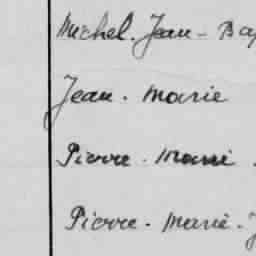 Michel. Jean - Bap
Jean. Marie
Pierre. Marie.
Pierre. Marie. J